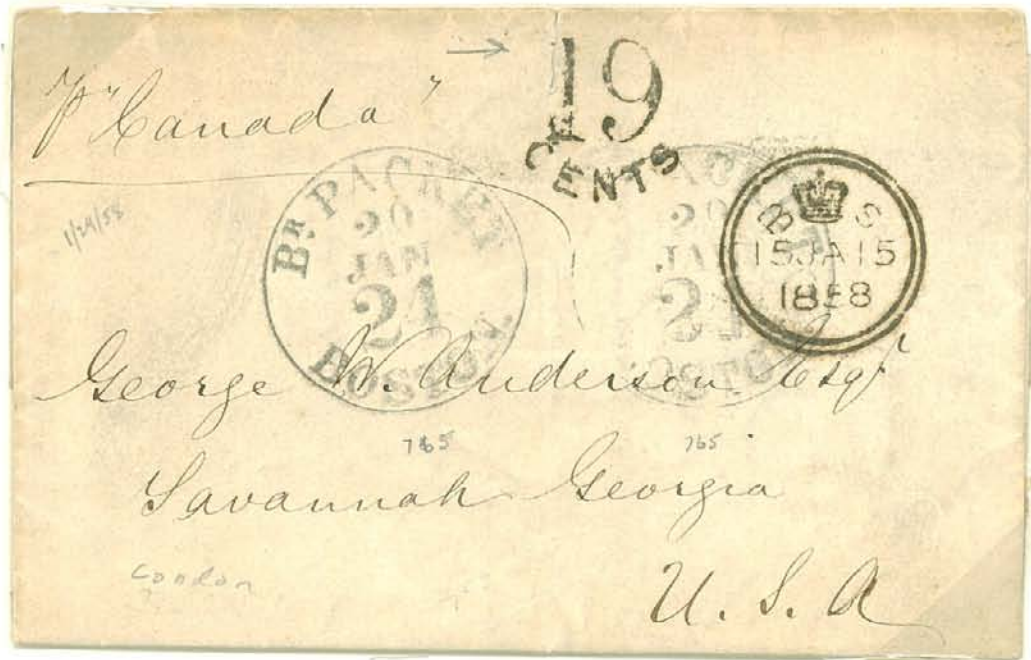 → 19
CENTS
P "Canada"
1/29/58
BR PACKET
20
JAN
21
BOSTON.
20
JA
21
OSTO
B S
15JA15
1858
George W. Anderson Esqr
765 765
Savannah Georgia
London
U. S. A